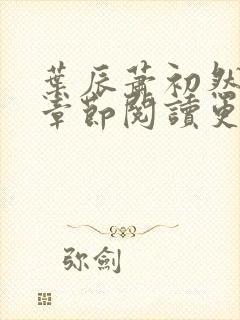 葉辰蕭初然
章節閱讀更
弥劍